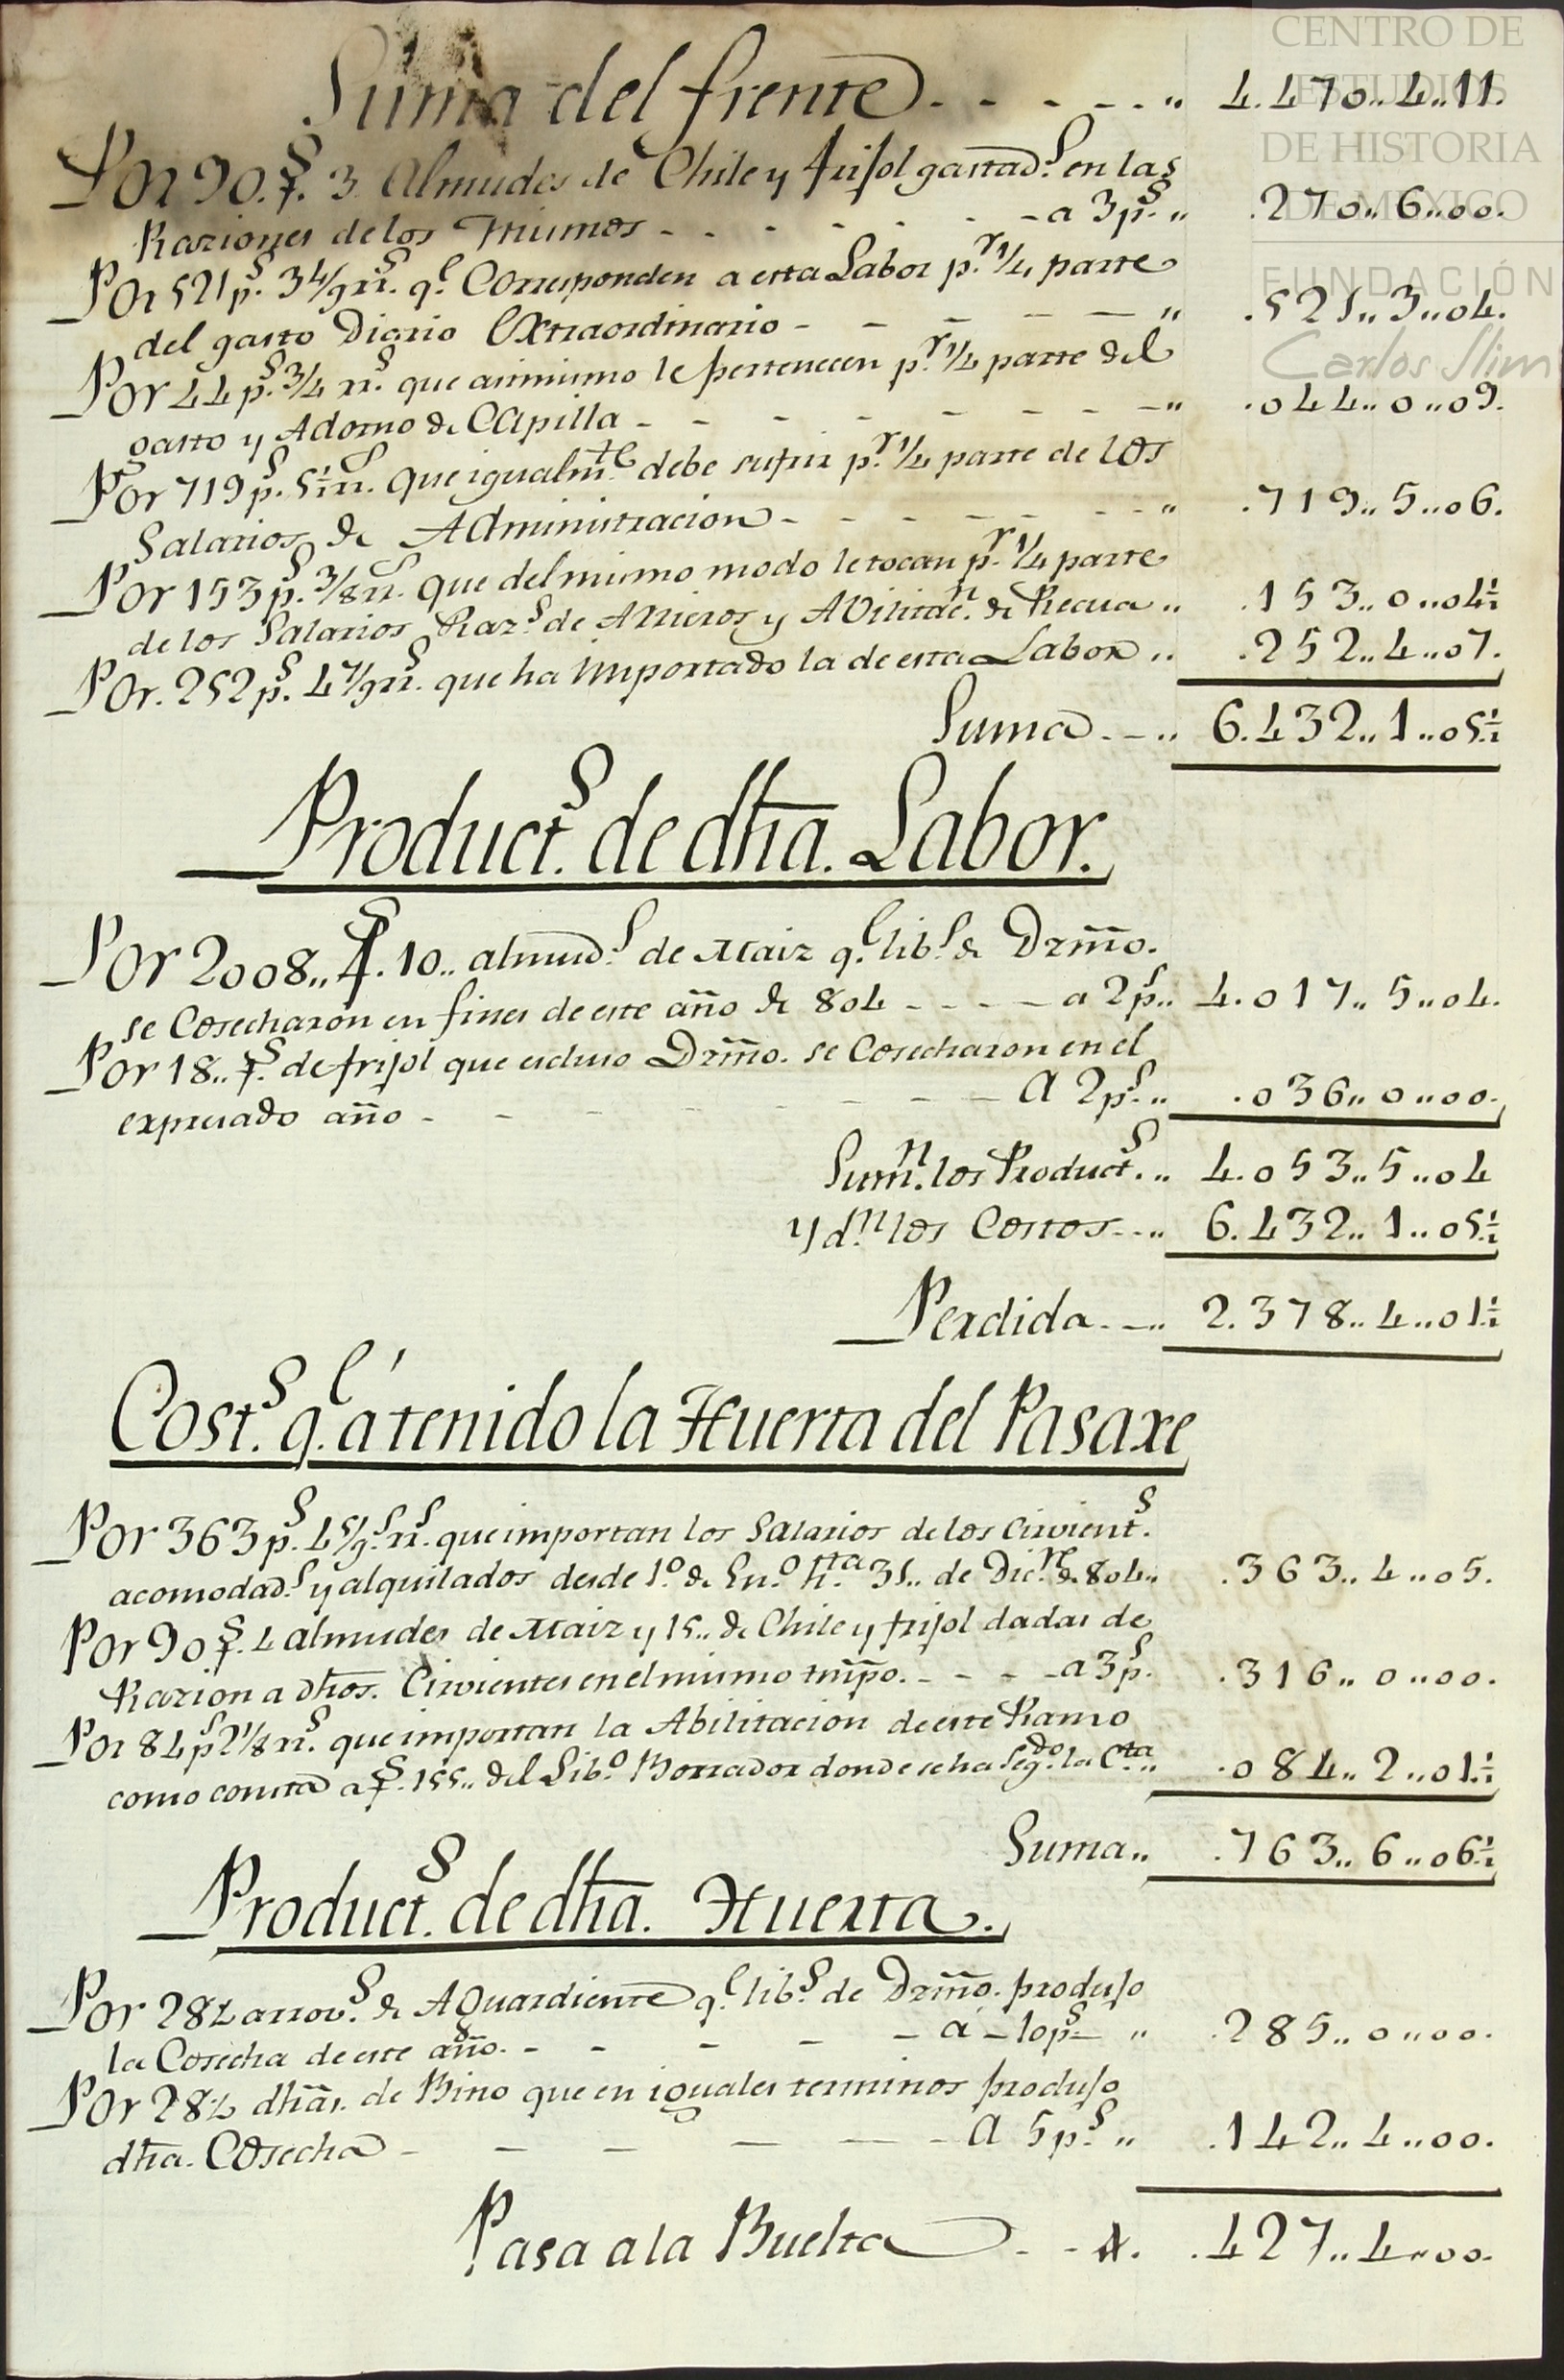 CENTRO DE
ESTUDIOS
DE HISTORIA
DE MEXICO
FUNDACIÓN
Carlos Slim
Suma del frente - - - - - .. 4.470.. 4..11.
Por 90. fs. 3 Almudes de Chile y frisol gastads. en las
Raziones de los Mismos - - - - - - a 3 ps. .. .270.. 6..00.
Por 521 ps. 3 4/9 rs. qe. Corresponden a esta Labor pr. 1/4 parte
del gasto Diario Extraordinario - - - - - .. .521.. 3..04.
Por 44 ps. 3/4 rs. que asimismo le pertenecen pr. 1/4 parte del
gasto y Adorno de Capilla - - - - - - - - .. .044.. 0..09.
Por 719 ps. 5 1/2 rs. Que igualmte. debe sufrir pr. 1/4 parte de los
Salarios de Administracion - - - - - - - .. .719.. 5..06.
Por 153 ps. 3/8 rs. Que del mismo modo le tocan pr. 1/4 parte
de los Salarios Razs. de Arrieros y Avilitacn. de Recua .. .153.. 0..04 1/2
Por. 252 ps. 4 7/9 rs. que ha Importado la de esta Labor .. .252.. 4..07.
Suma - - .. 6.432.. 1..05 1/2
Products. de dha. Labor.
Por 2008.. fs. 10.. almuds. de Maiz qe. libs. de Dzmo.
se Cosecharon en fines de este año de 804 - - - - a 2 ps.. 4.017.. 5..04.
Por 18.. fs. de frisol que escluso Dzmo. se Cosecharon en el
expresado año - - - - - - - - A 2 ps. .. .036.. 0..00.
Sumn. los Products. .. 4.053.. 5..04
y dn. los Costos - - .. 6.432.. 1..05 1/2
Perdida - - .. 2.378.. 4..01 1/2
Costs. qe. á tenido la Huerta del Pasaxe
Por 363 ps. 4 5/9 rs. que importan los Salarios de los Cirvients.
acomodads. y alquilados desde 1o. de Eno. hta. 31.. de Dicre. de 804.. .363.. 4..05.
Por 90 fs. 4 almudes de Maiz y 15.. de Chile y frisol dadas de
Razion a dhos. Cirvientes en el mismo tmpo. - - - - a 3 ps. .316.. 0..00.
Por 84 ps 2 1/8 rs. que importan la Abilitacion de este Ramo
como consta a fs. 155.. del Libo. Borrador donde se ha Segdo. la Cta. .. .084.. 2..01 1/2
Suma .. .763.. 6..06 1/2
Products. de dha. Huerta.
Por 28 1/2 arrovs. de Aguardiente qe. libs. de Dzmo. produjo
la Cosecha de este año. - - - - - á - 10 ps - .. .285.. 0..00.
Por 28 1/2 dhas. de Bino que en iguales terminos produjo
dha. Cosecha - - - - - - A 5 ps. .. .142.. 4..00.
Pasa a la Buelta - - A. .427.. 4..00.